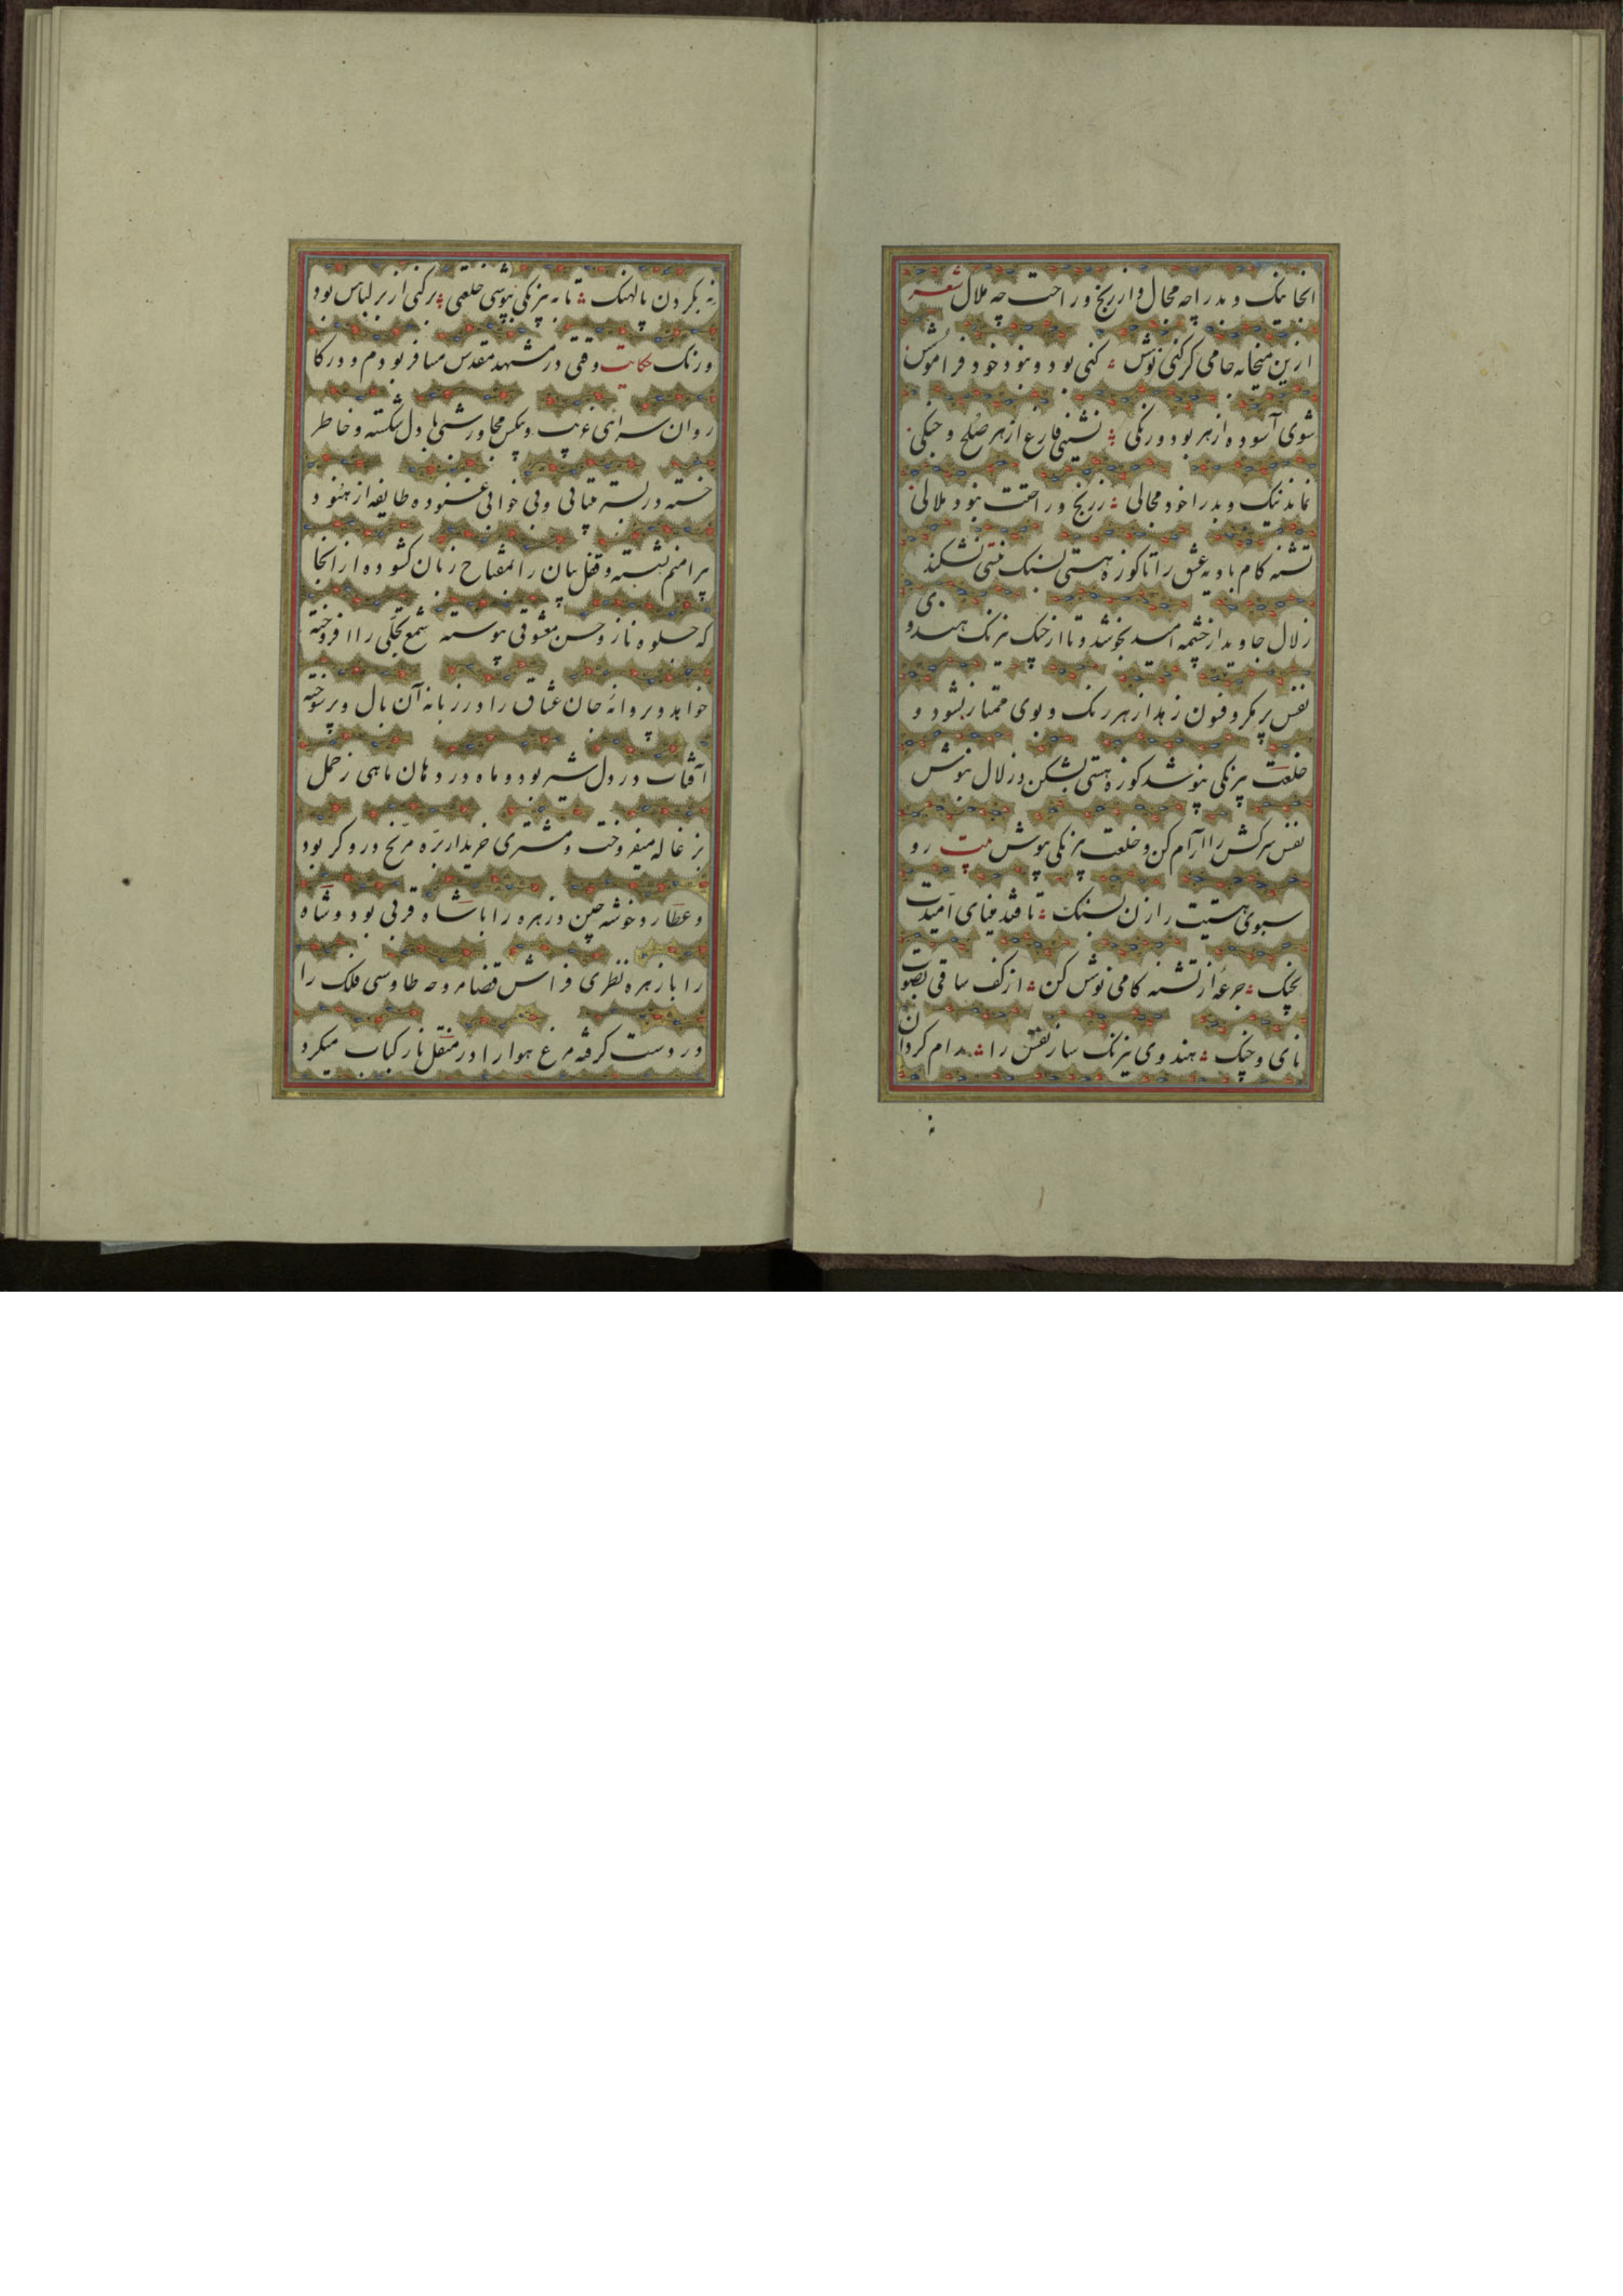 انجا نیک و بد را چه مجال و از رنج و راحت چه ملال شعر
ازین میخانه جامی گر کنی نوش کنی بود و نبود خود فراموش
شوی آسوده از هر بود و رنگی نشینی فارغ از هر صلح و جنگی
نماند نیک و بد را خود مجالی ز رنج و راحتت نبود ملالی
تشنه کام بادیه عشق را تا کوزه هستی بسنک نیستی نشکند
زلال جاوید از چشمه امید نجوشد و تا از خنک نیرنک هندوی
نفس پر مکر و فسون زهد از هر رنک و بوی ممتاز نشود و
خلعت بیرنکی نپوشد کوزه هستی بشکن و زلال بنوش
نفس سرکش را آرام کن و خلعت بیرنکی بپوش بیت رو
سبوی هستیت را زن بسنک تا فتد مینای امیدت
بچنک جرعه از تشنه کامی نوش کن از کف ساقی بصوت
نای و چنک هندوی نیرنک ساز نفس را رام کردان
نه بکردن پالهنک تا به بیرنکی بپوشی خلعتی برکنی از بر لباس بود
و رنک حکایت وقتی در مشهد مقدس مسافر بودم و در کا
روان سرای غربت و بیکسی مجاور شبی با دل شکسته و خاطر
خسته در بستر بیتابی و بی خوابی غنوده طایفه از هنود
پیرامنم نشسته و قفل بیان را بمفتاح زبان کشوده از انجا
که جلوه ناز و حسن معشوقی پیوسته شمع تجلی را افروخته
خواهد و پروانه جان عشاق را در زبانه آن بال و پر سوخته
آفتاب در دل شیر بود و ماه در دهان ماهی زحل
بزغاله میفروخت و مشتری خریدار بره مریخ دروکر بود
و عطارد خوشه چین و زهره را با شاه قربی بود و شاه
را با زهره نظری فراش قضا مروحه طاوسی فلک را
در دست کرفته مرغ هوا را در منقل نار کباب میکرد